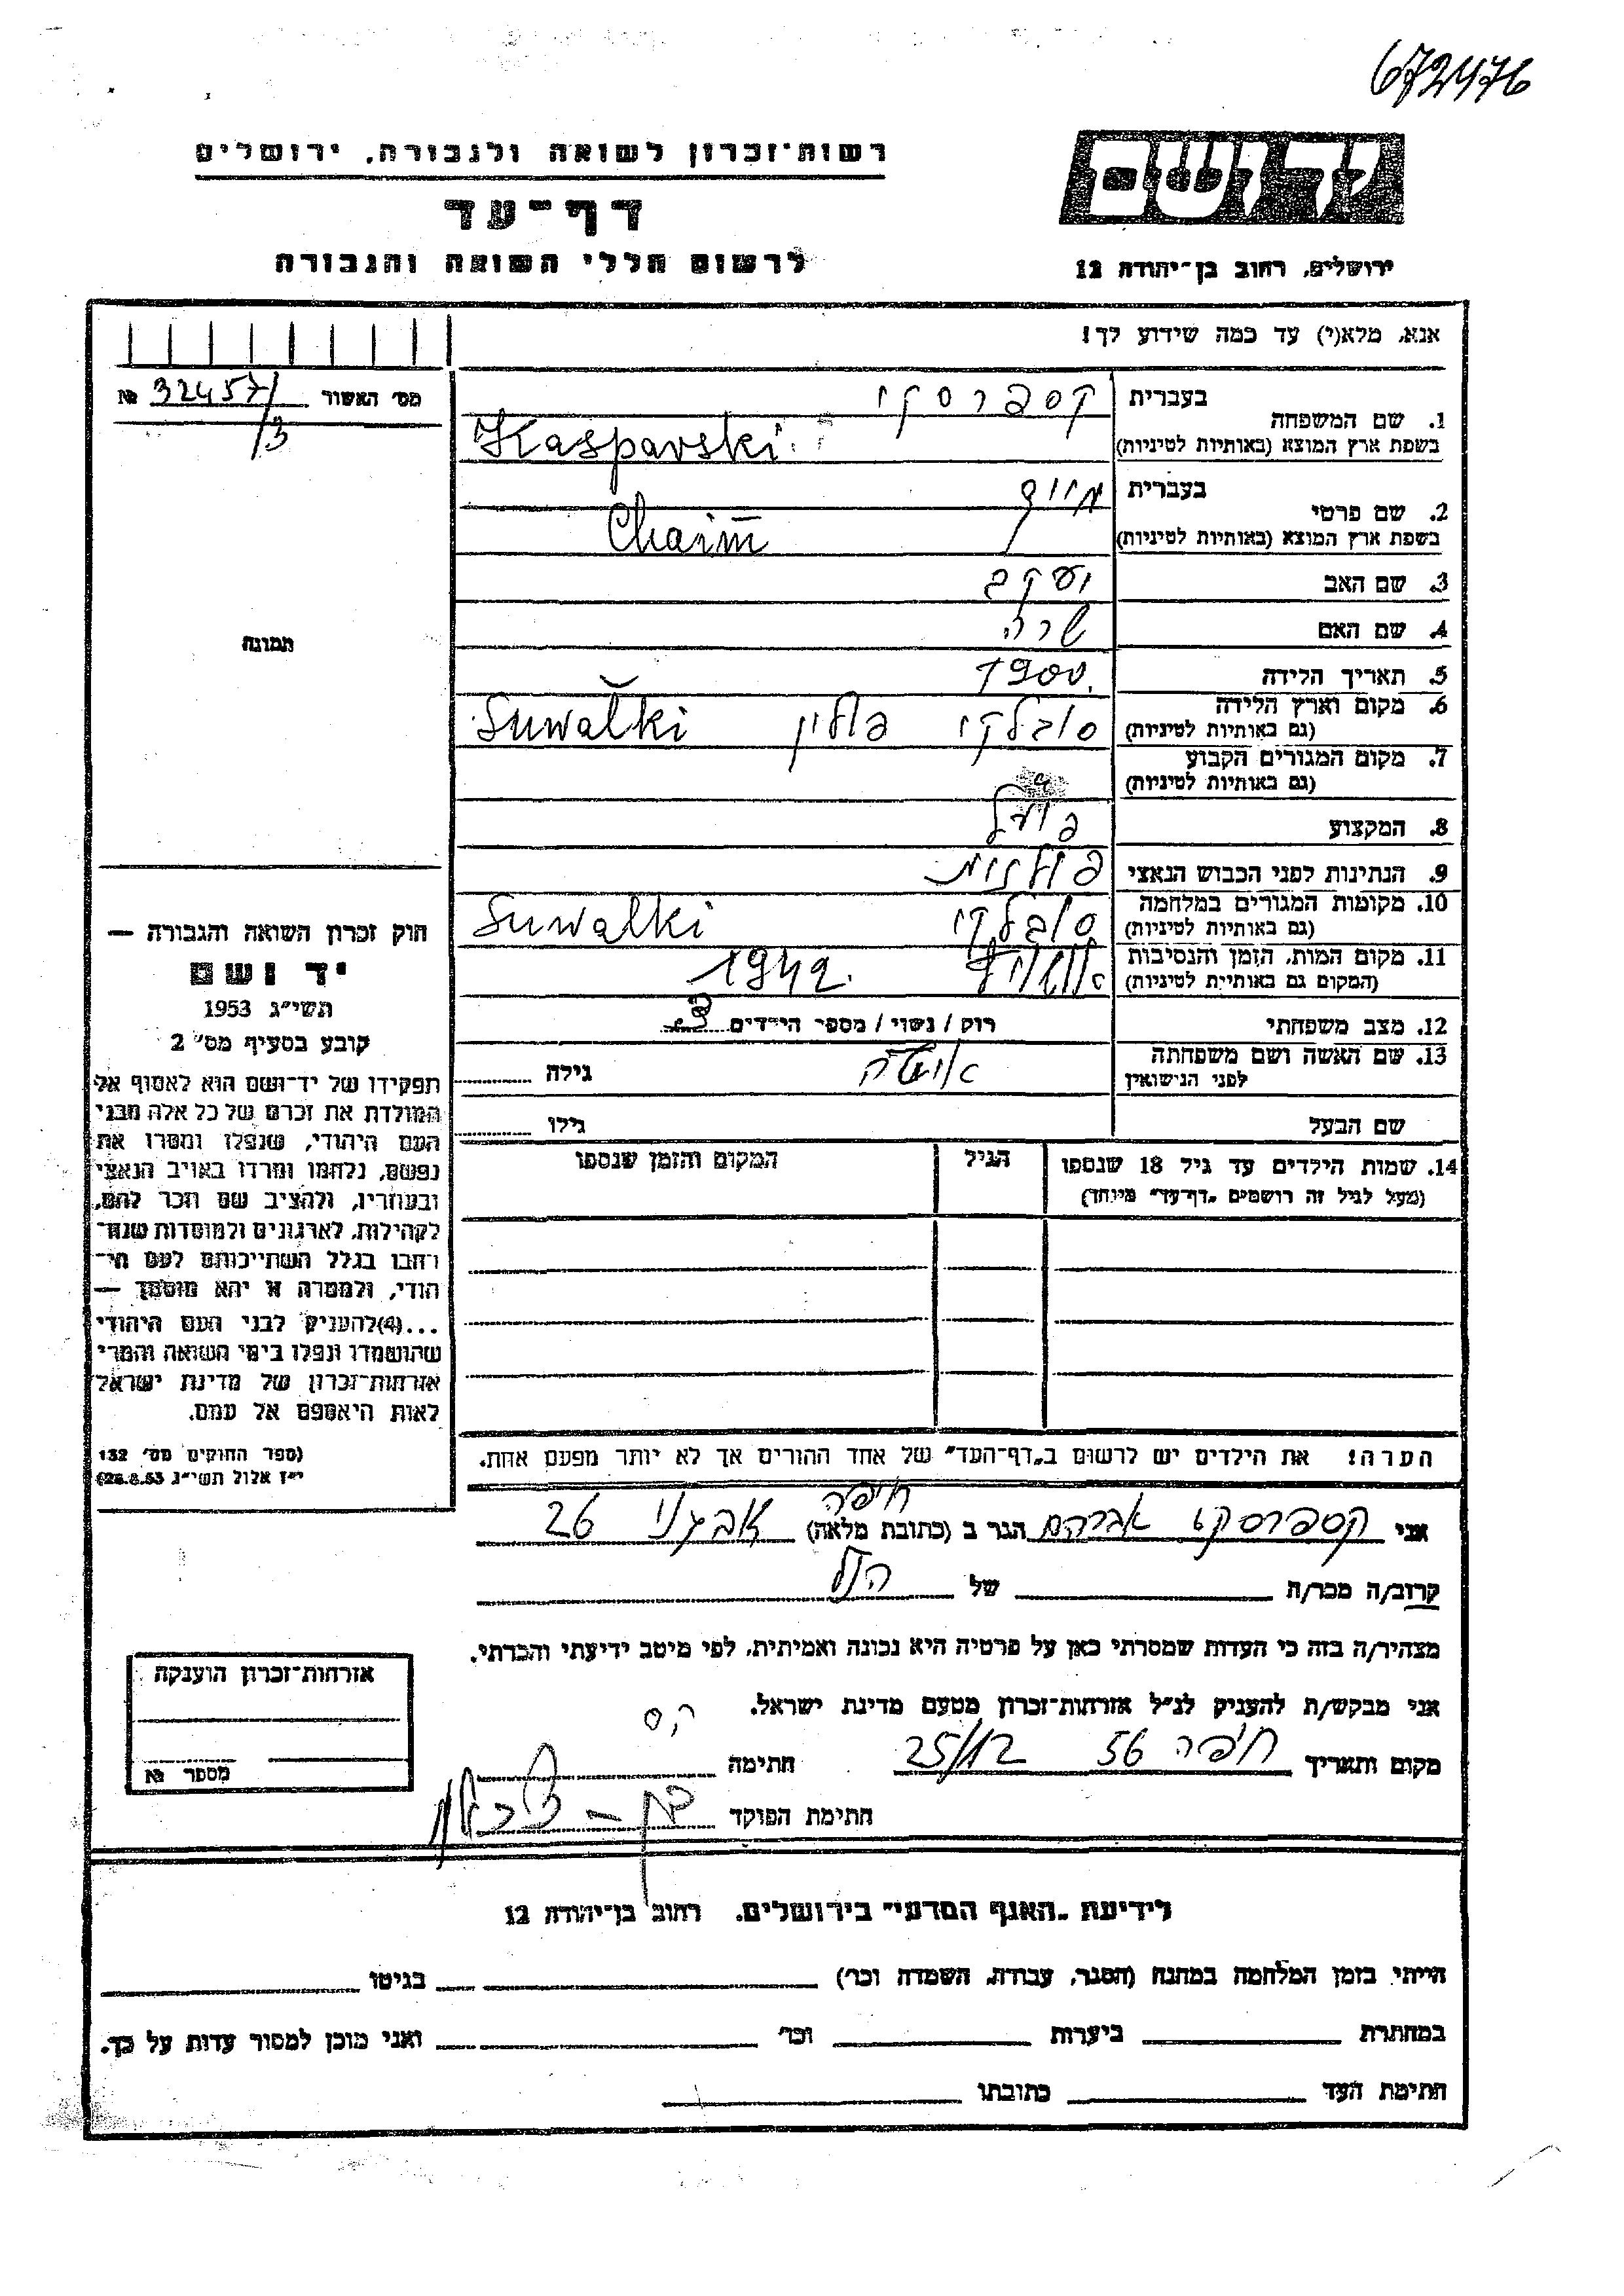 672476
יד ושם
רשות־זכרון לשואה ולגבורה, ירושלים
דף־עד
לרשום חללי השואה והגבורה
ירושלים, רחוב בן־יהודה 12
אנא, מלא(י) עד כמה שידוע לך!
מס׳ האשור 32457/3 №
1. שם המשפחה בעברית קספרסקי
בשפת ארץ המוצא (באותיות לטיניות) Kasparski
2. שם פרטי בעברית חיים
בשפת ארץ המוצא (באותיות לטיניות) Chaim
3. שם האב יעקב
4. שם האם שרה
תמונה
5. תאריך הלידה 1900
6. מקום וארץ הלידה (גם באותיות לטיניות) סובלקי פולין Suwałki
7. מקום המגורים הקבוע (גם באותיות לטיניות)
8. המקצוע פועל
9. הנתינות לפני הכבוש הנאצי פולנית
10. מקומות המגורים במלחמה (גם באותיות לטיניות) סובלקי Suwałki
11. מקום המות, הזמן והנסיבות (המקום גם באותיות לטיניות) 1942.
12. מצב משפחתי רוק / נשוי / מספר הילדים 3
13. שם האשה ושם משפחתה לפני הנישואין גילה
שם הבעל גילו
14. שמות הילדים עד גיל 18 שנספו הגיל המקום והזמן שנספו
(מעל לגיל זה רושמים „דף־עד״ מיוחד)
חוק זכרון השואה והגבורה —
יד ושם
תשי״ג 1953
קובע בסעיף מס׳ 2
תפקידו של יד־ושם הוא לאסוף אל
המולדת את זכרם של כל אלה מבני
העם היהודי, שנפלו ומסרו את
נפשם, נלחמו ומרדו באויב הנאצי
ובעוזריו, ולהציב שם וזכר להם,
לקהילות, לארגונים ולמוסדות שנח־
רבו בגלל השתייכותם לעם הי־
הודי, ולמטרה זו יהא מוסמך —
...(4)להעניק לבני העם היהודי
שהושמדו ונפלו בימי השואה והמרי
אזרחות־זכרון של מדינת ישראל
לאות היאספם אל עמם.
(ספר החוקים מס׳ 132
י״ז אלול תשי״ג 28.8.53)
הערה! את הילדים יש לרשום ב„דף־העד״ של אחד ההורים אך לא יותר מפעם אחת.
אני קספרסקי אברהם הגר ב (כתובת מלאה) חיפה 26
קרוב/ה מכר/ה של הנ״ל
מצהיר/ה בזה כי העדות שמסרתי כאן על פרטיה היא נכונה ואמיתית, לפי מיטב ידיעתי והכרתי.
אני מבקש/ת להעניק לנ״ל אזרחות־זכרון מטעם מדינת ישראל.
מקום ותאריך חיפה 25/12 56 חתימה
חתימת הפוקד
אזרחות־זכרון הוענקה
מספר №
לידיעת „האגף המדעי״ בירושלים, רחוב בן־יהודה 12
הייתי בזמן המלחמה במחנה (הסגר, עבודה, השמדה וכר) בגיטו
במחתרת ביערות וכר ואני מוכן למסור עדות על כך.
חתימת העד כתובתו